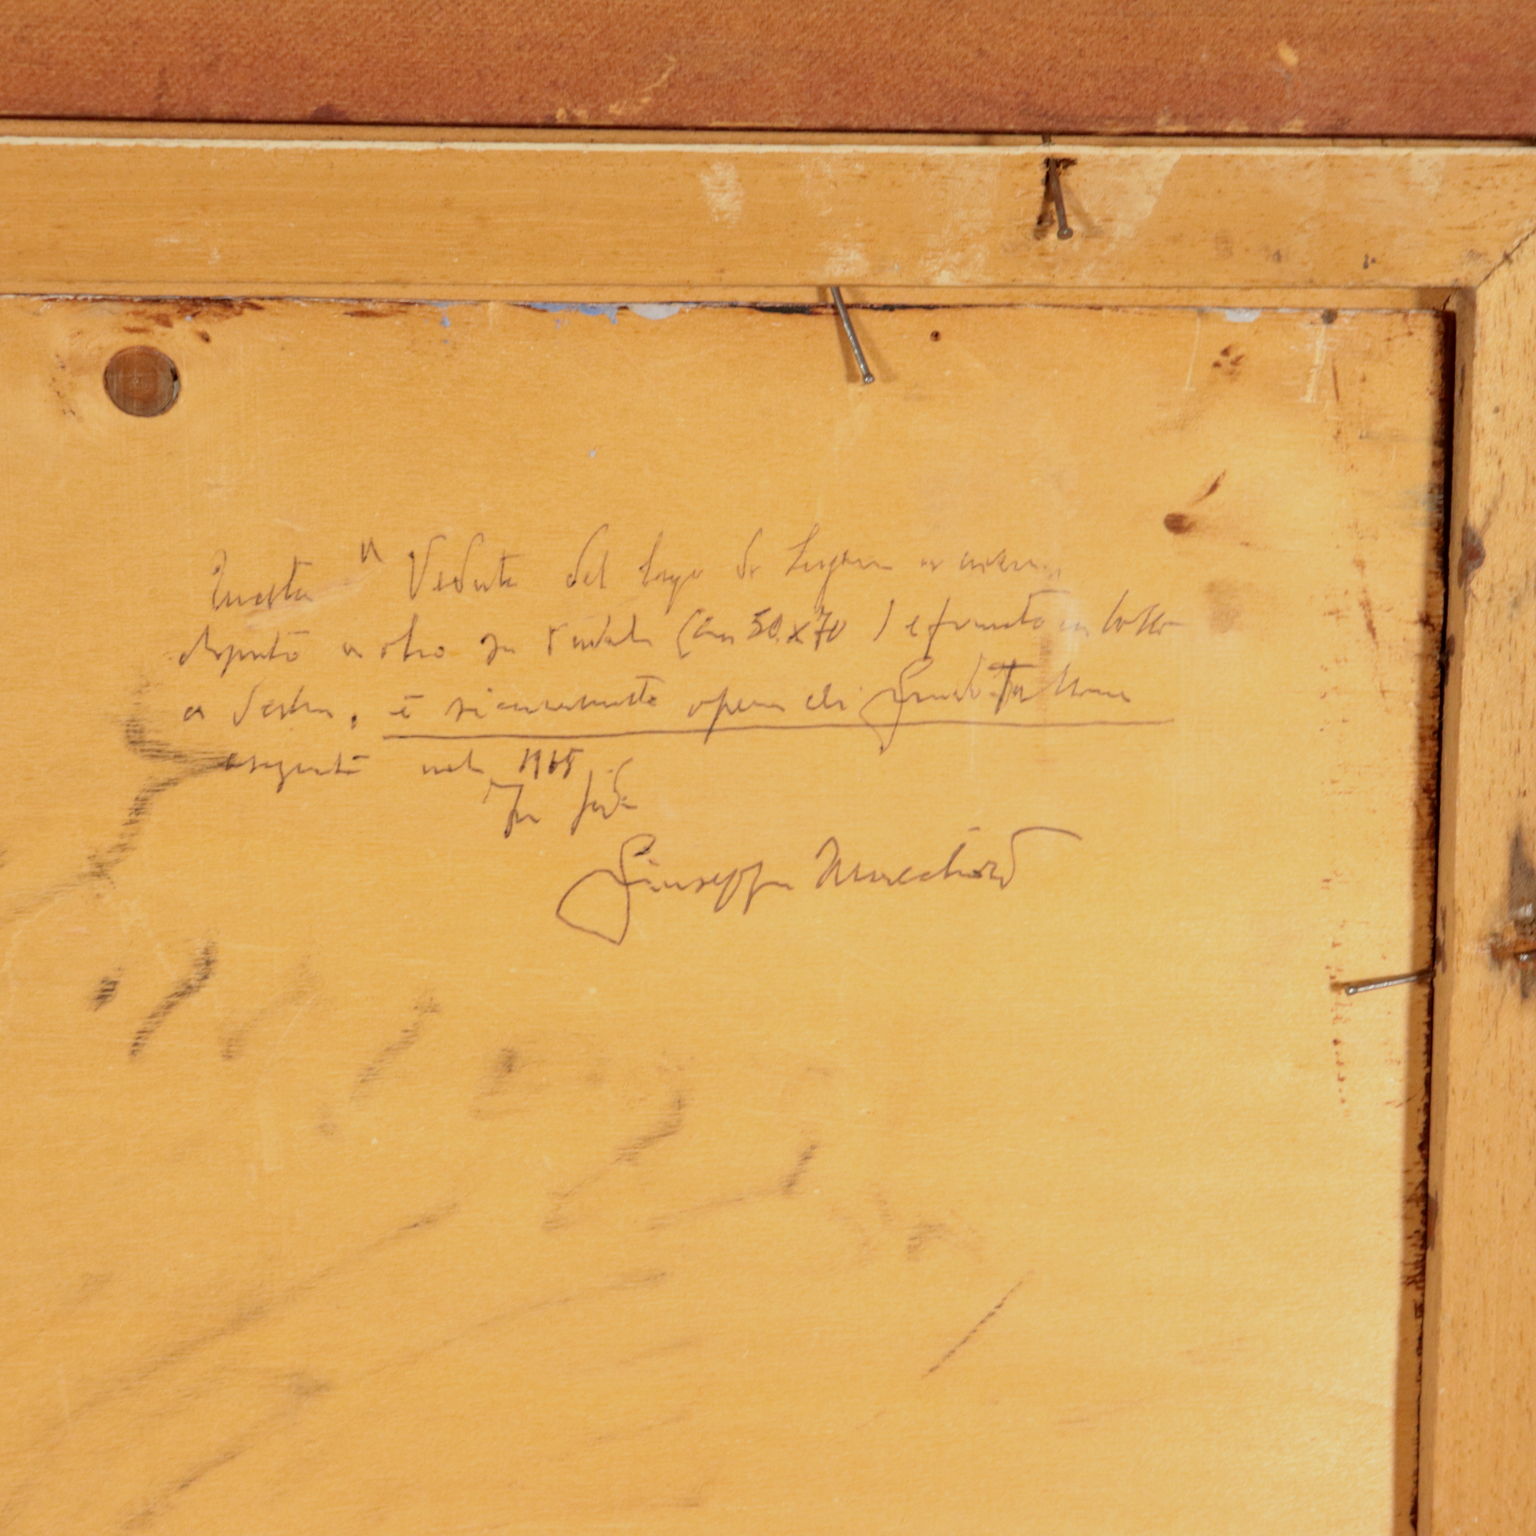 Questa " Veduta del lago di Lugano
dipinto a olio su (cm 50 x 70) e firmato in basso
a destra, è sicuramente opera di Guido Tallone
eseguita nel 1965
In fede
Giuseppe